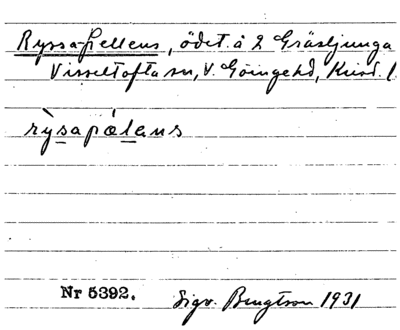 Ryssapellens, ödet. å 2 Gräsljunga
Visseltofta sn, V. Göinge hd, Krist. l.
rỳsapálans
Nr 5392.
Sigv. Bengtson 1931